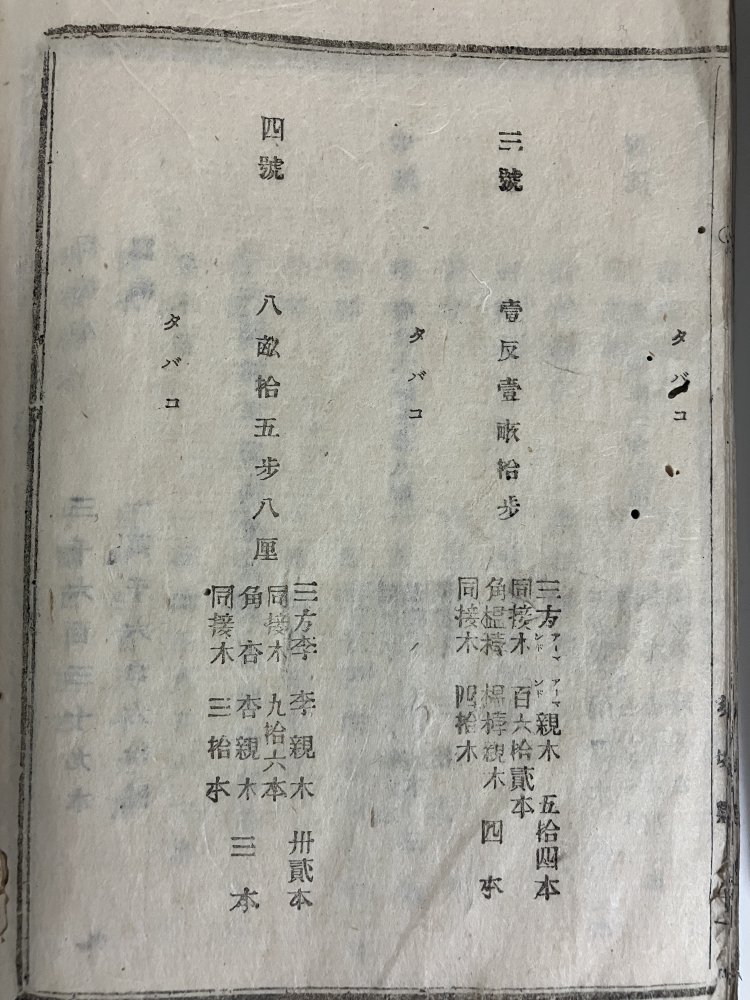 タバコ
三號
壹反壹畝拾步
三方アーマンド アーマンド親木 五拾四本
同接木 百六拾貳本
角榲桲 榲桲親木 四本
同接木 四拾木
タバコ
四號
八畝拾五步八厘
三方李 李親木 卅貳本
同接木 九拾六本
角杏 杏親木 三本
同接木 三拾本
タバコ